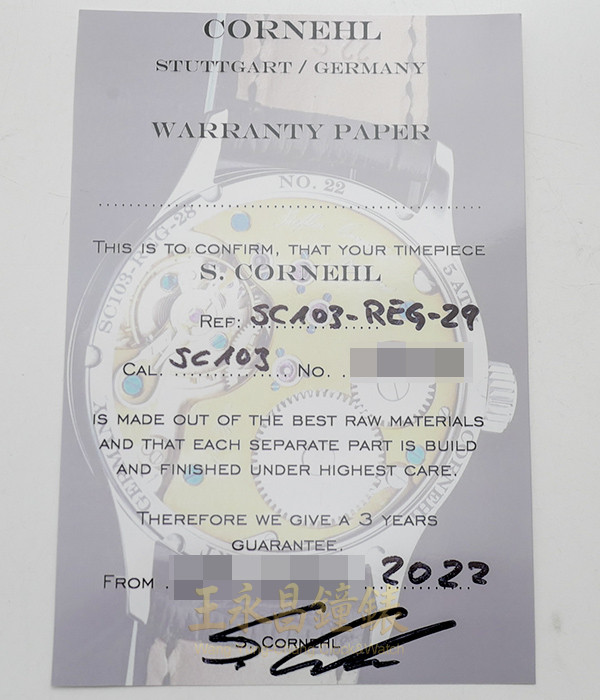 CORNEHL
STUTTGART / GERMANY
WARRANTY PAPER
NO. 22
SC103-REG-28
5 ATM
THIS IS TO CONFIRM, THAT YOUR TIMEPIECE
S. CORNEHL
REF: SC103-REG-29
CAL. SC103 NO.
IS MADE OUT OF THE BEST RAW MATERIALS
AND THAT EACH SEPARATE PART IS BUILD
AND FINISHED UNDER HIGHEST CARE.
CORNEHL
GERMANY
THEREFORE WE GIVE A 3 YEARS
GUARANTEE.
FROM 2022
王永昌鐘錶
S. CORNEHL